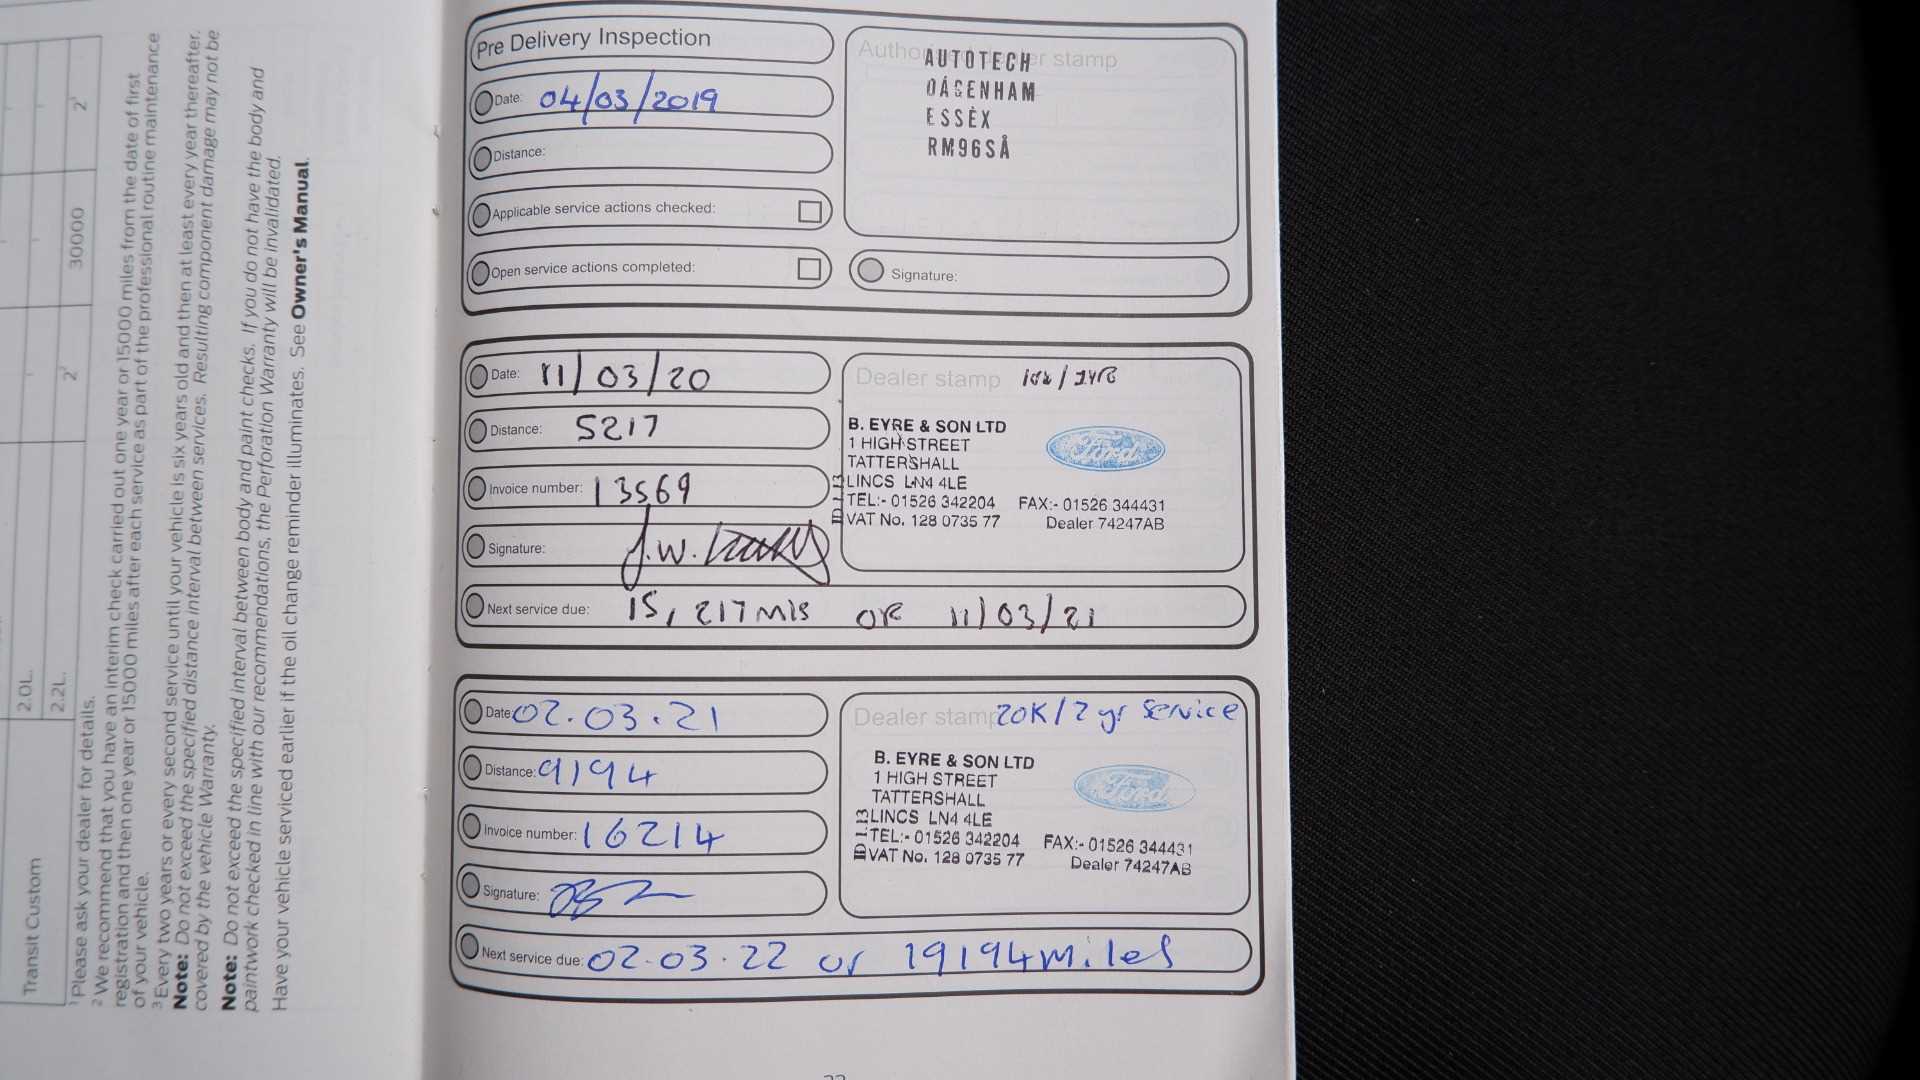 2.0L. - - -
2.2L. 2³ 30000 2³
Transit Custom
¹ Please ask your dealer for details.
² We recommend that you have an interim check carried out one year or 15000 miles from the date of first
registration and then one year or 15000 miles after each service as part of the professional routine maintenance
of your vehicle.
³ Every two years or every second service until your vehicle is six years old and then at least every year thereafter.
Note: Do not exceed the specified distance interval between services. Resulting component damage may not be
covered by the vehicle Warranty.
Note: Do not exceed the specified interval between body and paint checks. If you do not have the body and
paintwork checked in line with our recommendations, the Perforation Warranty will be invalidated.
Have your vehicle serviced earlier if the oil change reminder illuminates. See Owner's Manual.
Pre Delivery Inspection
Date: 04/03/2019
Distance:
Applicable service actions checked:
Open service actions completed:
Authorised dealer stamp
AUTOTECH
DAGENHAM
ESSEX
RM96SA
Signature:
Date: 11/03/20
Distance: 5217
Invoice number: 13569
Signature: J.W.
Next service due: 15,217 mls OR 11/03/21
Dealer stamp 10K/1YR
B. EYRE & SON LTD
1 HIGH STREET
TATTERSHALL
LINCS LN4 4LE
TEL:- 01526 342204 FAX:- 01526 344431
VAT No. 128 0735 77 Dealer 74247AB
Ford
Date: 02.03.21
Distance: 9194
Invoice number: 16214
Signature:
Next service due: 02.03.22 or 19194 miles
Dealer stamp 20K/2 yr Service
B. EYRE & SON LTD
1 HIGH STREET
TATTERSHALL
LINCS LN4 4LE
TEL:- 01526 342204 FAX:- 01526 344431
VAT No. 128 0735 77 Dealer 74247AB
Ford